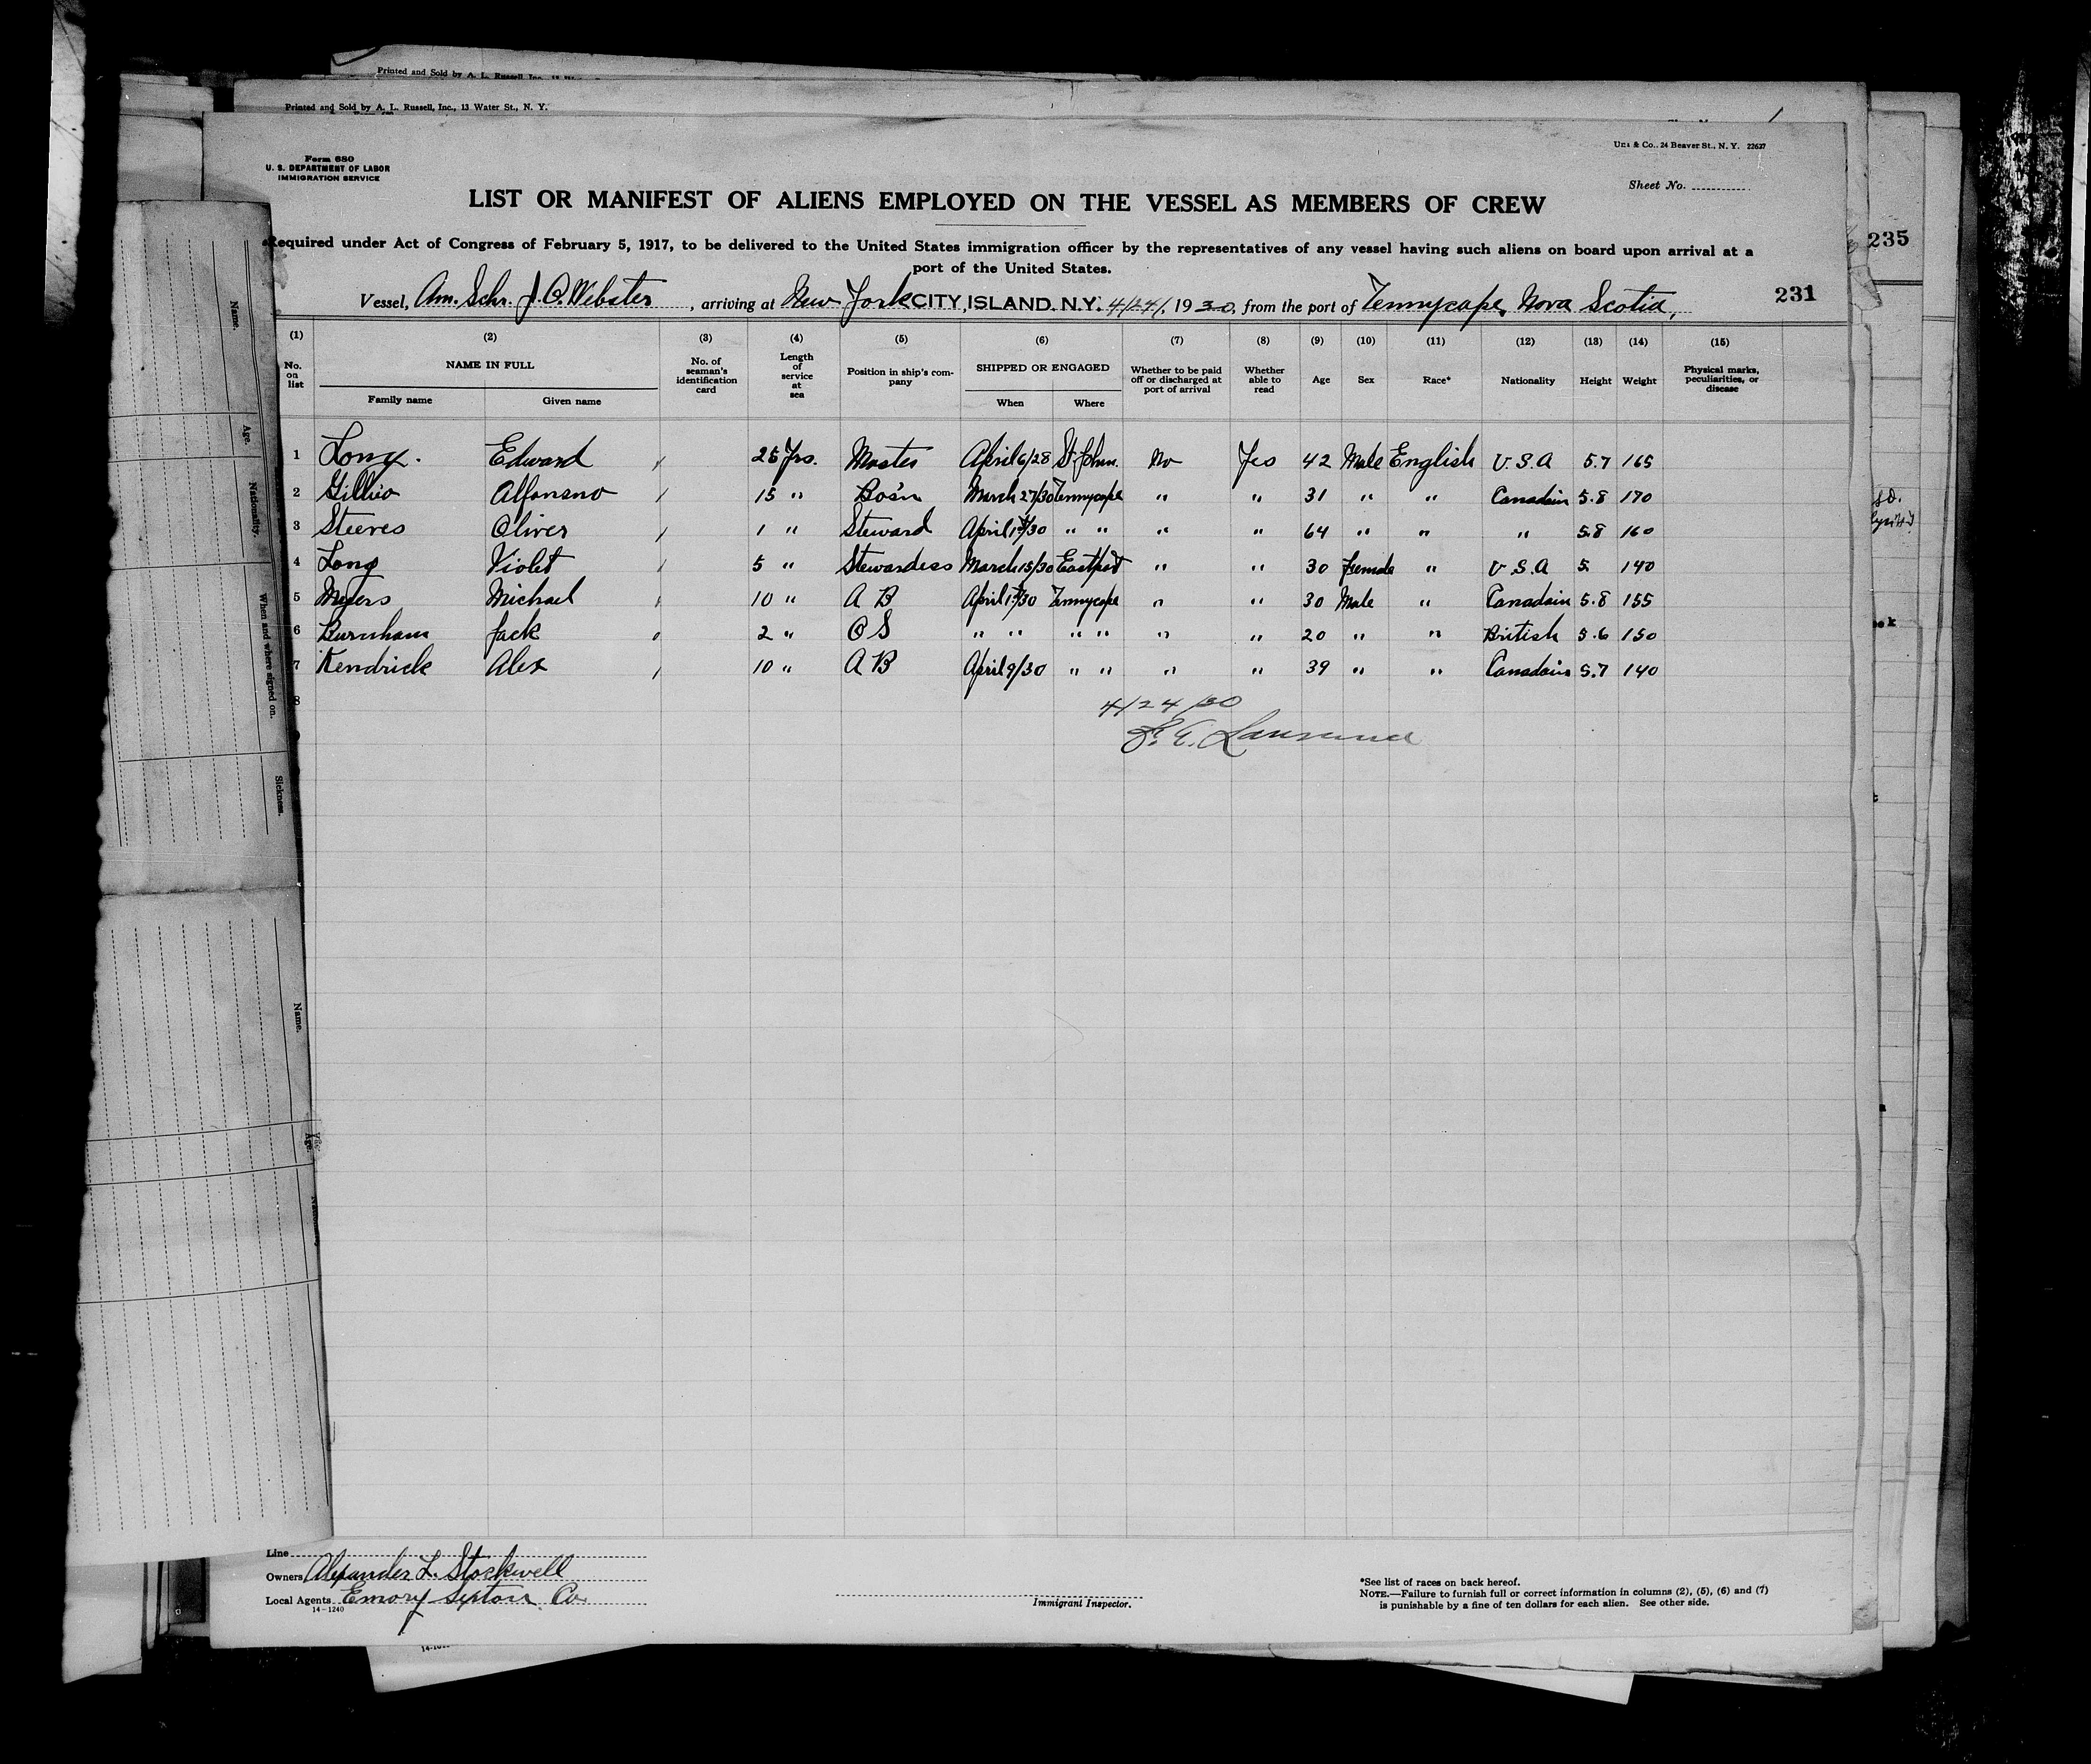 Printed and Sold by A. L. Russell, Inc.,
Printed and Sold by A. L. Russell, Inc., 13 Water St., N. Y.
Form 680
U. S. DEPARTMENT OF LABOR
IMMIGRATION SERVICE
& Co., 24 Beaver St., N. Y. 22627
Sheet No.
LIST OR MANIFEST OF ALIENS EMPLOYED ON THE VESSEL AS MEMBERS OF CREW
Required under Act of Congress of February 5, 1917, to be delivered to the United States immigration officer by the representatives of any vessel having such aliens on board upon arrival at a
port of the United States.
235
Vessel, Am. Schr. J. C. Webster, arriving at New York CITY, ISLAND. N.Y. 4/24/, 1930, from the port of Tennycape, Nova Scotia, 231
(1) (2) (3) (4) (5) (6) (7) (8) (9) (10) (11) (12) (13) (14) (15)
No. on list NAME IN FULL No. of seaman's identification card Length of service at sea Position in ship's company SHIPPED OR ENGAGED Whether to be paid off or discharged at port of arrival Whether able to read Age Sex Race* Nationality Height Weight Physical marks, peculiarities, or disease
Family name Given name When Where
1 Long. Edward / 25 Yrs. Master April 6/28 St John. No Yes 42 Male English U.S.A 5.7 165
2 Alfonsno / 15 " Bos'n March 27/30 Tennycape " " 31 " " Canadain 5.8 170
3 Steeves Oliver / 1 " Steward April /30 " " " " 64 " " " 5.8 160
4 Long Violet / 5 " Stewardess March 15/30 Eastport " " 30 Female " U.S.A 5 140
5 Myers Michael / 10 " A B April /30 Tennycape " " 30 Male " Canadain 5.8 155
6 Burnham Jack 2 " O S " " " " " " 20 " " British 5.6 150
7 Kendrick Alex / 10 " A B April 9/30 " " " " 39 " " Canadain 5.7 140
8
4/24/30
Name.
Age.
Nationality.
When and where signed on.
Sickness.
Name.
Age.
Line
Owners Alexander L. Stockwell
Local Agents Emory Sexton Co.
14-1240
Immigrant Inspector.
*See list of races on back hereof.
NOTE.—Failure to furnish full or correct information in columns (2), (5), (6) and (7)
is punishable by a fine of ten dollars for each alien. See other side.